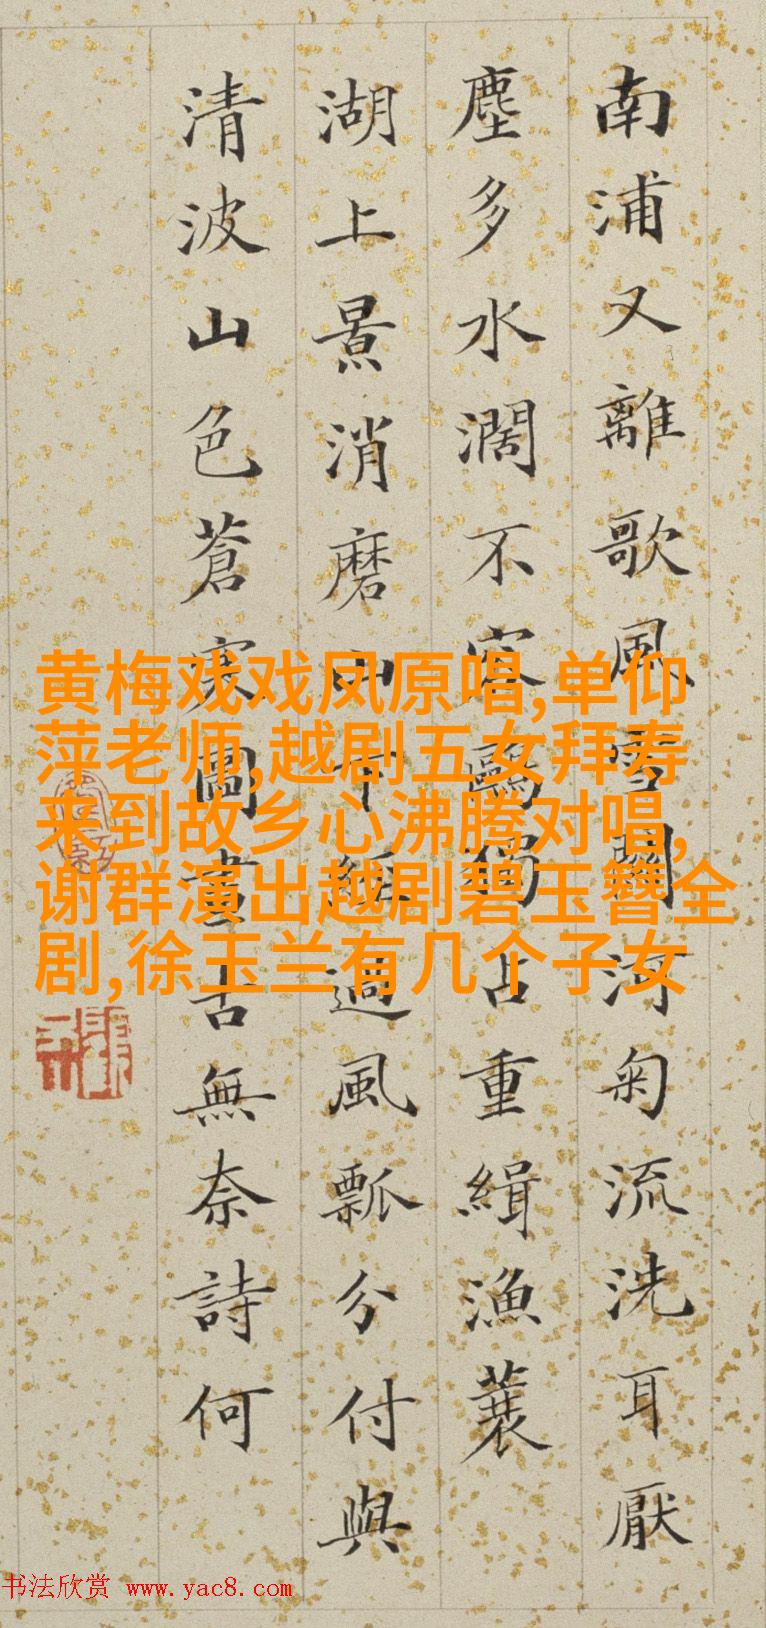 南浦又離歌風雪關河菊流洗耳厭
塵多水濶不容鷗獨占重緝漁蓑
湖上景消磨山下經過風瓢分付與
清波山色蒼寒圖畫古無奈詩何
黄梅戏戏凤原唱,单仰
萍老师,越剧五女拜寿
来到故乡心沸腾对唱,
谢群演出越剧碧玉簪全
剧,徐玉兰有几个子女
书法欣赏 www.yac8.com